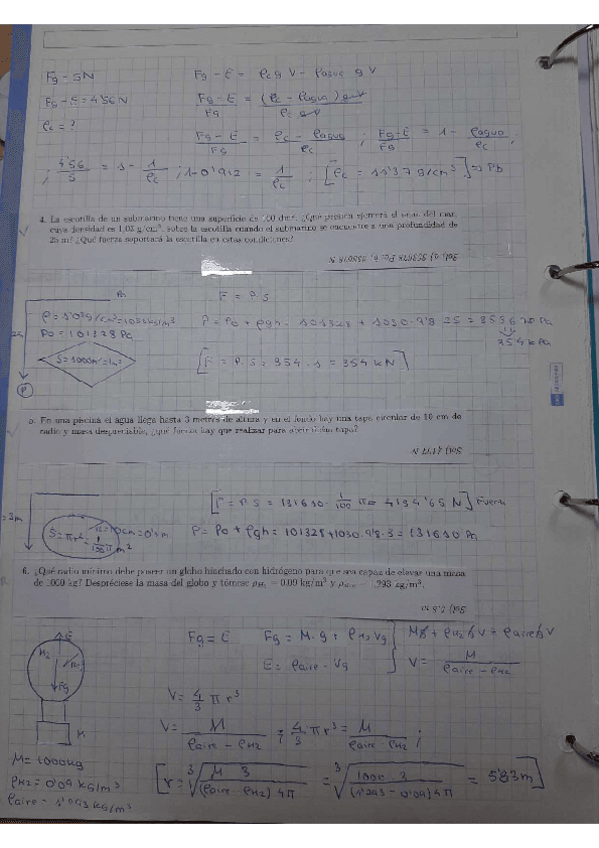 Fg = 5N
Fg - E = ρc g V - ρagua g V
Fg - E = 4'56N
Fg - E / Fg = (ρc - ρagua) g V / ρc g V
ρc = ?
Fg - E / Fg = ρc - ρagua / ρc ; Fg - E / Fg = 1 - ρagua / ρc ;
; 4'56 / 5 = 1 - 1 / ρc ; 1 - 0'912 = 1 / ρc ; [ρc = 11'37 g/cm³] → Pb
4. La escotilla de un submarino tiene una superficie de 100 dm². ¿Qué presión ejercerá el agua del mar,
cuya densidad es 1,03 g/cm³, sobre la escotilla cuando el submarino se encuentre a una profundidad de
25 m? ¿Qué fuerza soportará la escotilla en estas condiciones?
F = P · S
ρ = 1'03 g/cm³ = 1030 kg/m³
P = Po + ρgh = 101328 + 1030 · 9'8 · 25 =
Po = 101328 Pa
354 kPa
S = 100dm² = 1m²
[F = P · S = 354 · 1 = 354 kN]
P
5. En una piscina el agua llega hasta 3 metros de altura y en el fondo hay una tapa circular de 10 cm de
radio y masa despreciable, ¿qué fuerza hay que realizar para abrir dicha tapa?
[F = P · S = 131610 · 1/100 π = 4134'65 N] Fuerza
= 3m
r = 10cm = 0'1m
S = πr² = 1/100 π m²
P = Po + ρgh = 101328 + 1030 · 9'8 · 3 = 131610 Pa
6. ¿Qué radio mínimo debe poseer un globo hinchado con hidrógeno para que sea capaz de elevar una masa
de 1000 kg? Despréciese la masa del globo y tómese ρH₂ = 0,09 kg/m³ y ρaire = 1,293 kg/m³.
E
Fg = E
Fg = M · g + ρH2 Vg
Mg + ρH2 g V = ρaire g V
H2
E = ρaire · Vg
V = M / ρaire - ρH2
Fg
V = 4/3 π r³
V = M / ρaire - ρH2 ; 4/3 π r³ = M / ρaire - ρH2 ;
M
M = 1000kg
ρH2 = 0'09 kg/m³
ρaire = 1'293 kg/m³
[r = ∛(M · 3 / (ρaire - ρH2) 4π) = ∛(1000 · 3 / (1'293 - 0'09) 4π) = 5'83m]